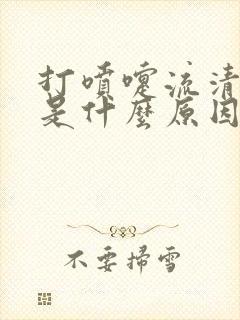 打噴嚏流清
是什麼原因
不要掃雪